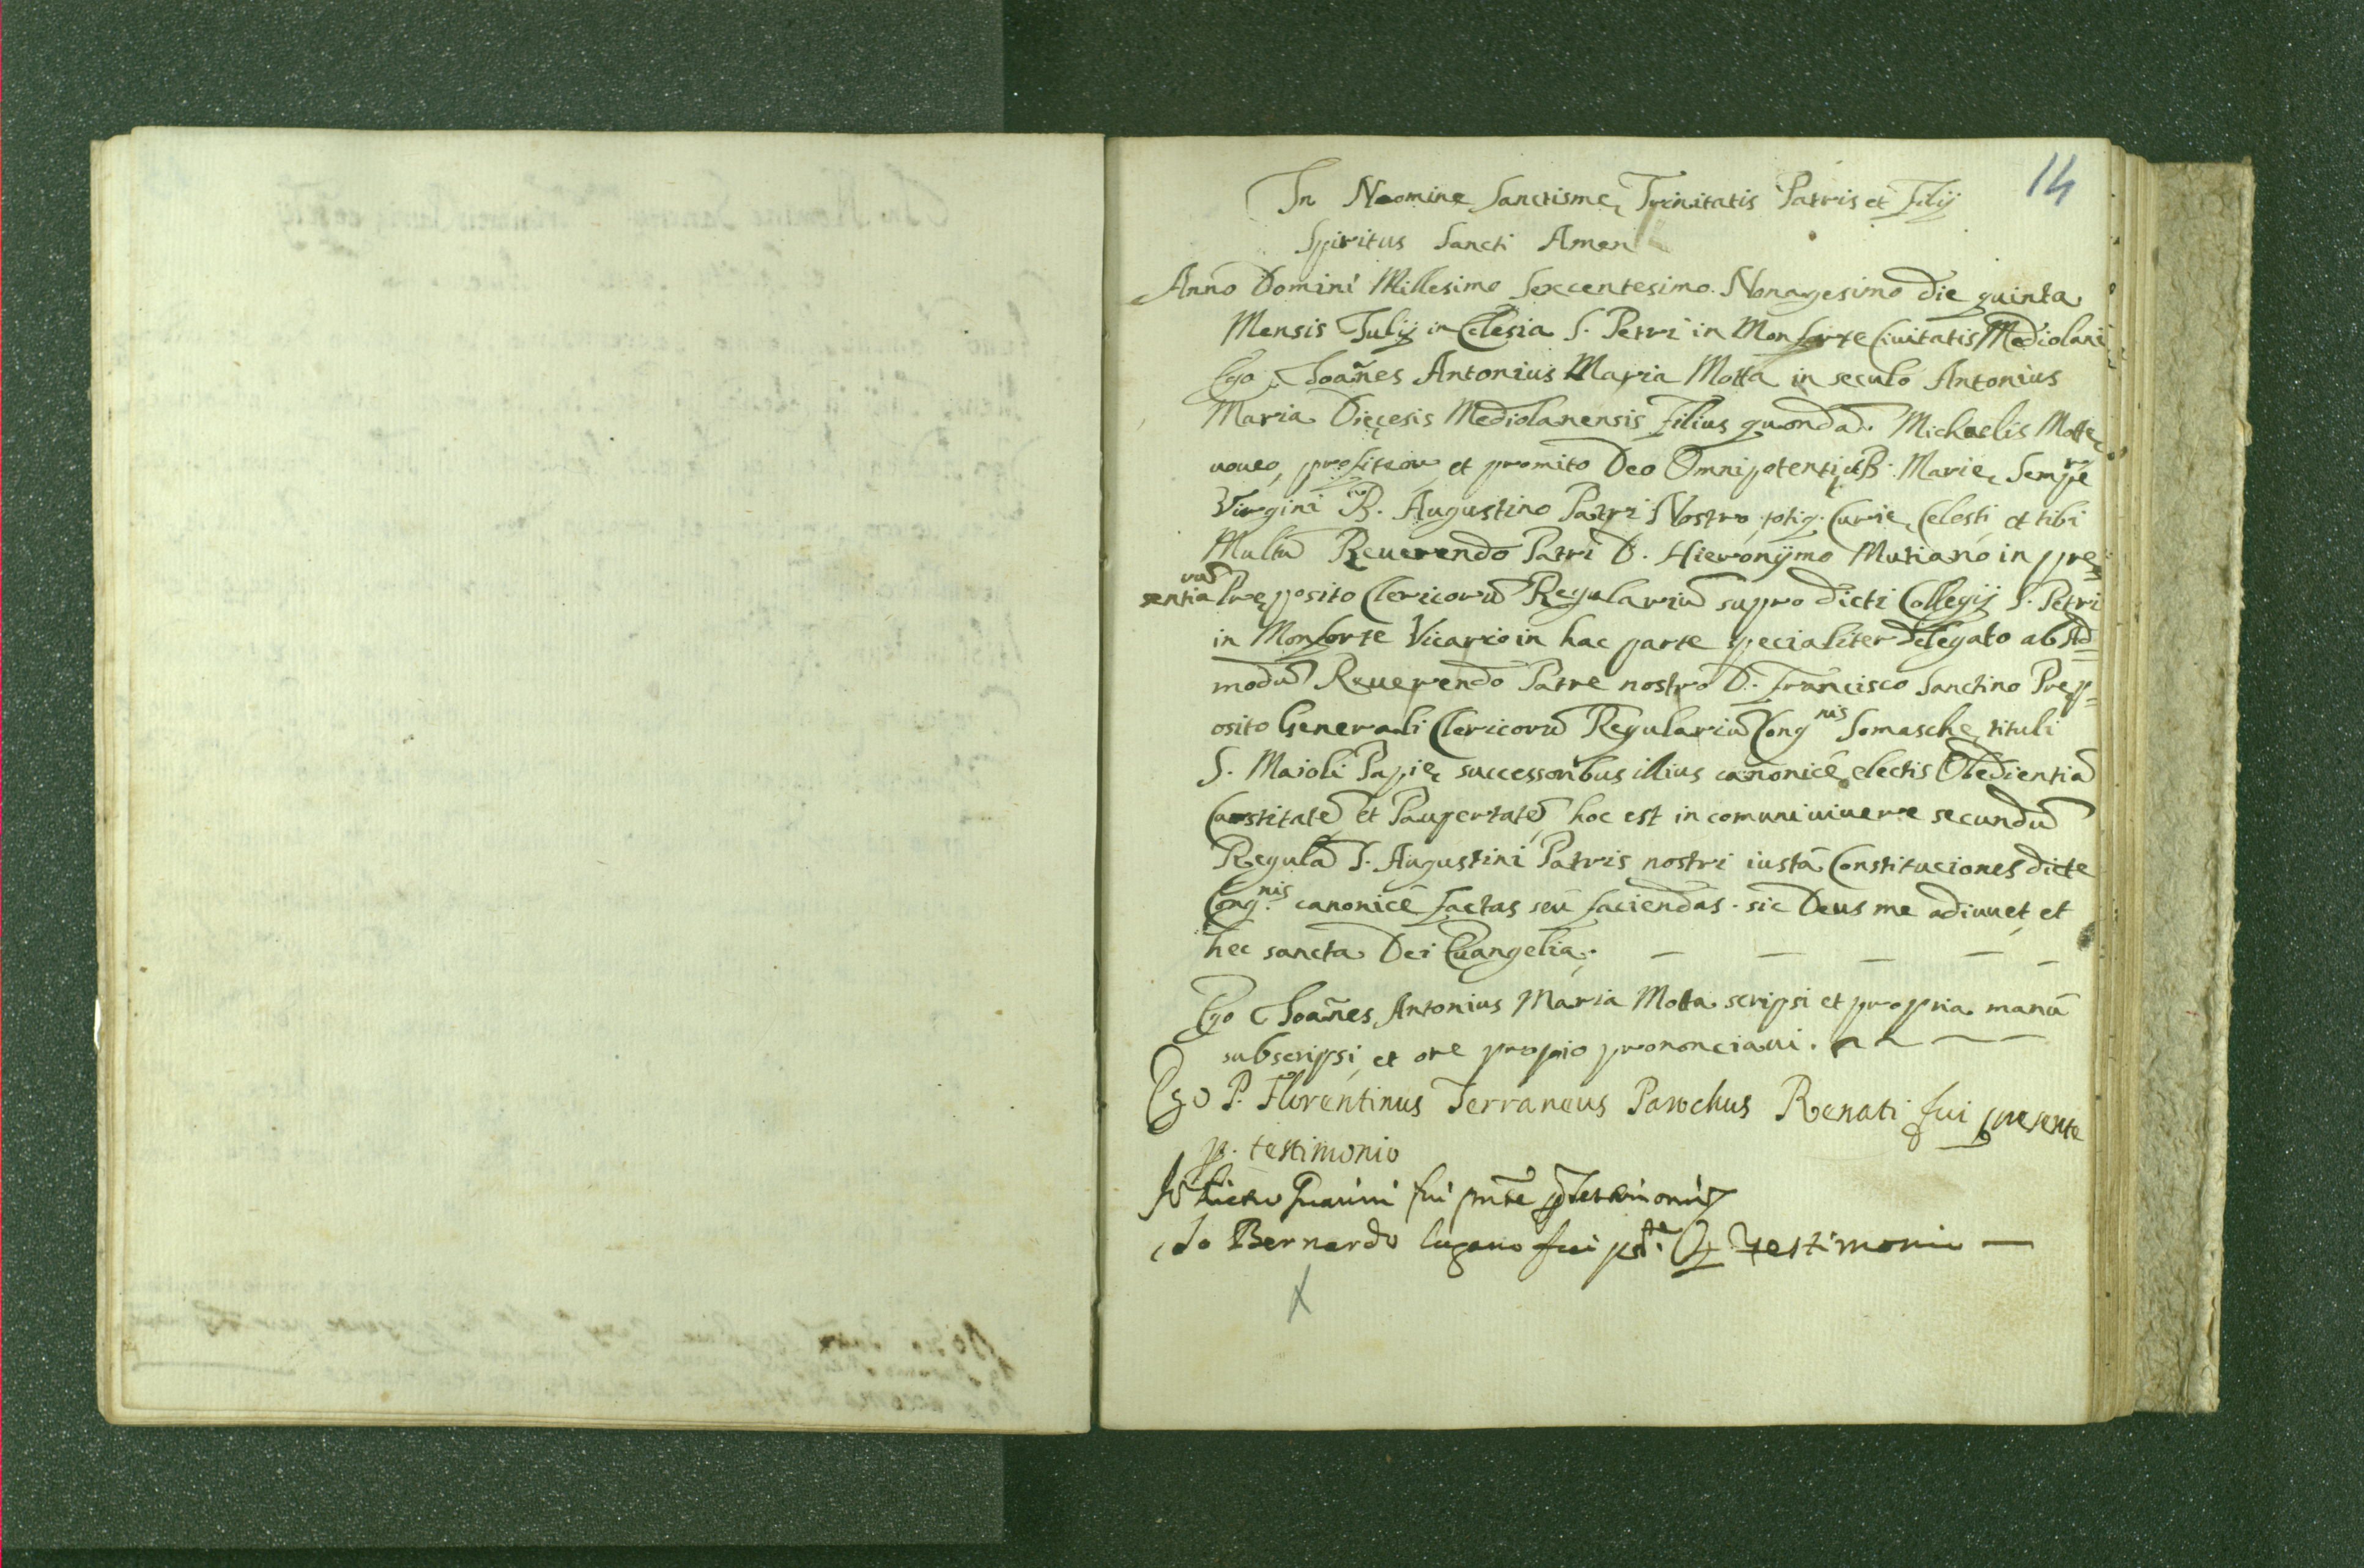 14
In Noomine Sanctisme Trinitatis Patris et Filij
Spiritus Sancti Amen
Anno Domini Millesimo Sexcentesimo Nonagesimo die quinta
Mensis Iulij in Eclesia S. Petri in Monforte Ciuitatis Mediolani
Ego Ioañes Antonius Maria Motta in seculo Antonius
Maria Dięcesis Mediolanensis Filius quondã Michaelis Motte
voueo, profiteor et promito Deo Omnipotenti, B. Marie, Sempre
Virgini B. Augustino Patri Nostro, totiq. Curie, Celesti, et tibi
Multũ Reuerendo Patri D. Hieronÿmo Mutiano in pre=
sentiarũ Pręposito Clericorũ Regulariũ supro dicti Collegij S. Petri
in Monforte Vicario in hac parte specialiter delegato ab Ad=
modũ Reuerendo Patre nostro D. Francisco Sanctino Prep=
osito Generali Clericorũ Regulariũ Congnis Somasche, tituli
S. Maioli Papię successoribus illius canonicè electis Obedientiã
Castitatẽ et Paupertatẽ hoc est in comuni uiuere secundũ
Regulã S. Augustini Patris nostri iustà Constituciones dicte
Cong.nis canonicè factas seu faciendas. sic Deus me adiuuet, et
hec sancta Dei Euangelia. — — — — —
Ego Ioañes Antonius Maria Motta scripsi et propria manũ
subscripsi, et ore proprio prononciaui.
Ego P. Florentinus Terraneus Parochus Renati fui presente
p. testimonio
Io Pietro fui pñte p testimonio
Io Bernardo lugano fui pñte p testimonio —